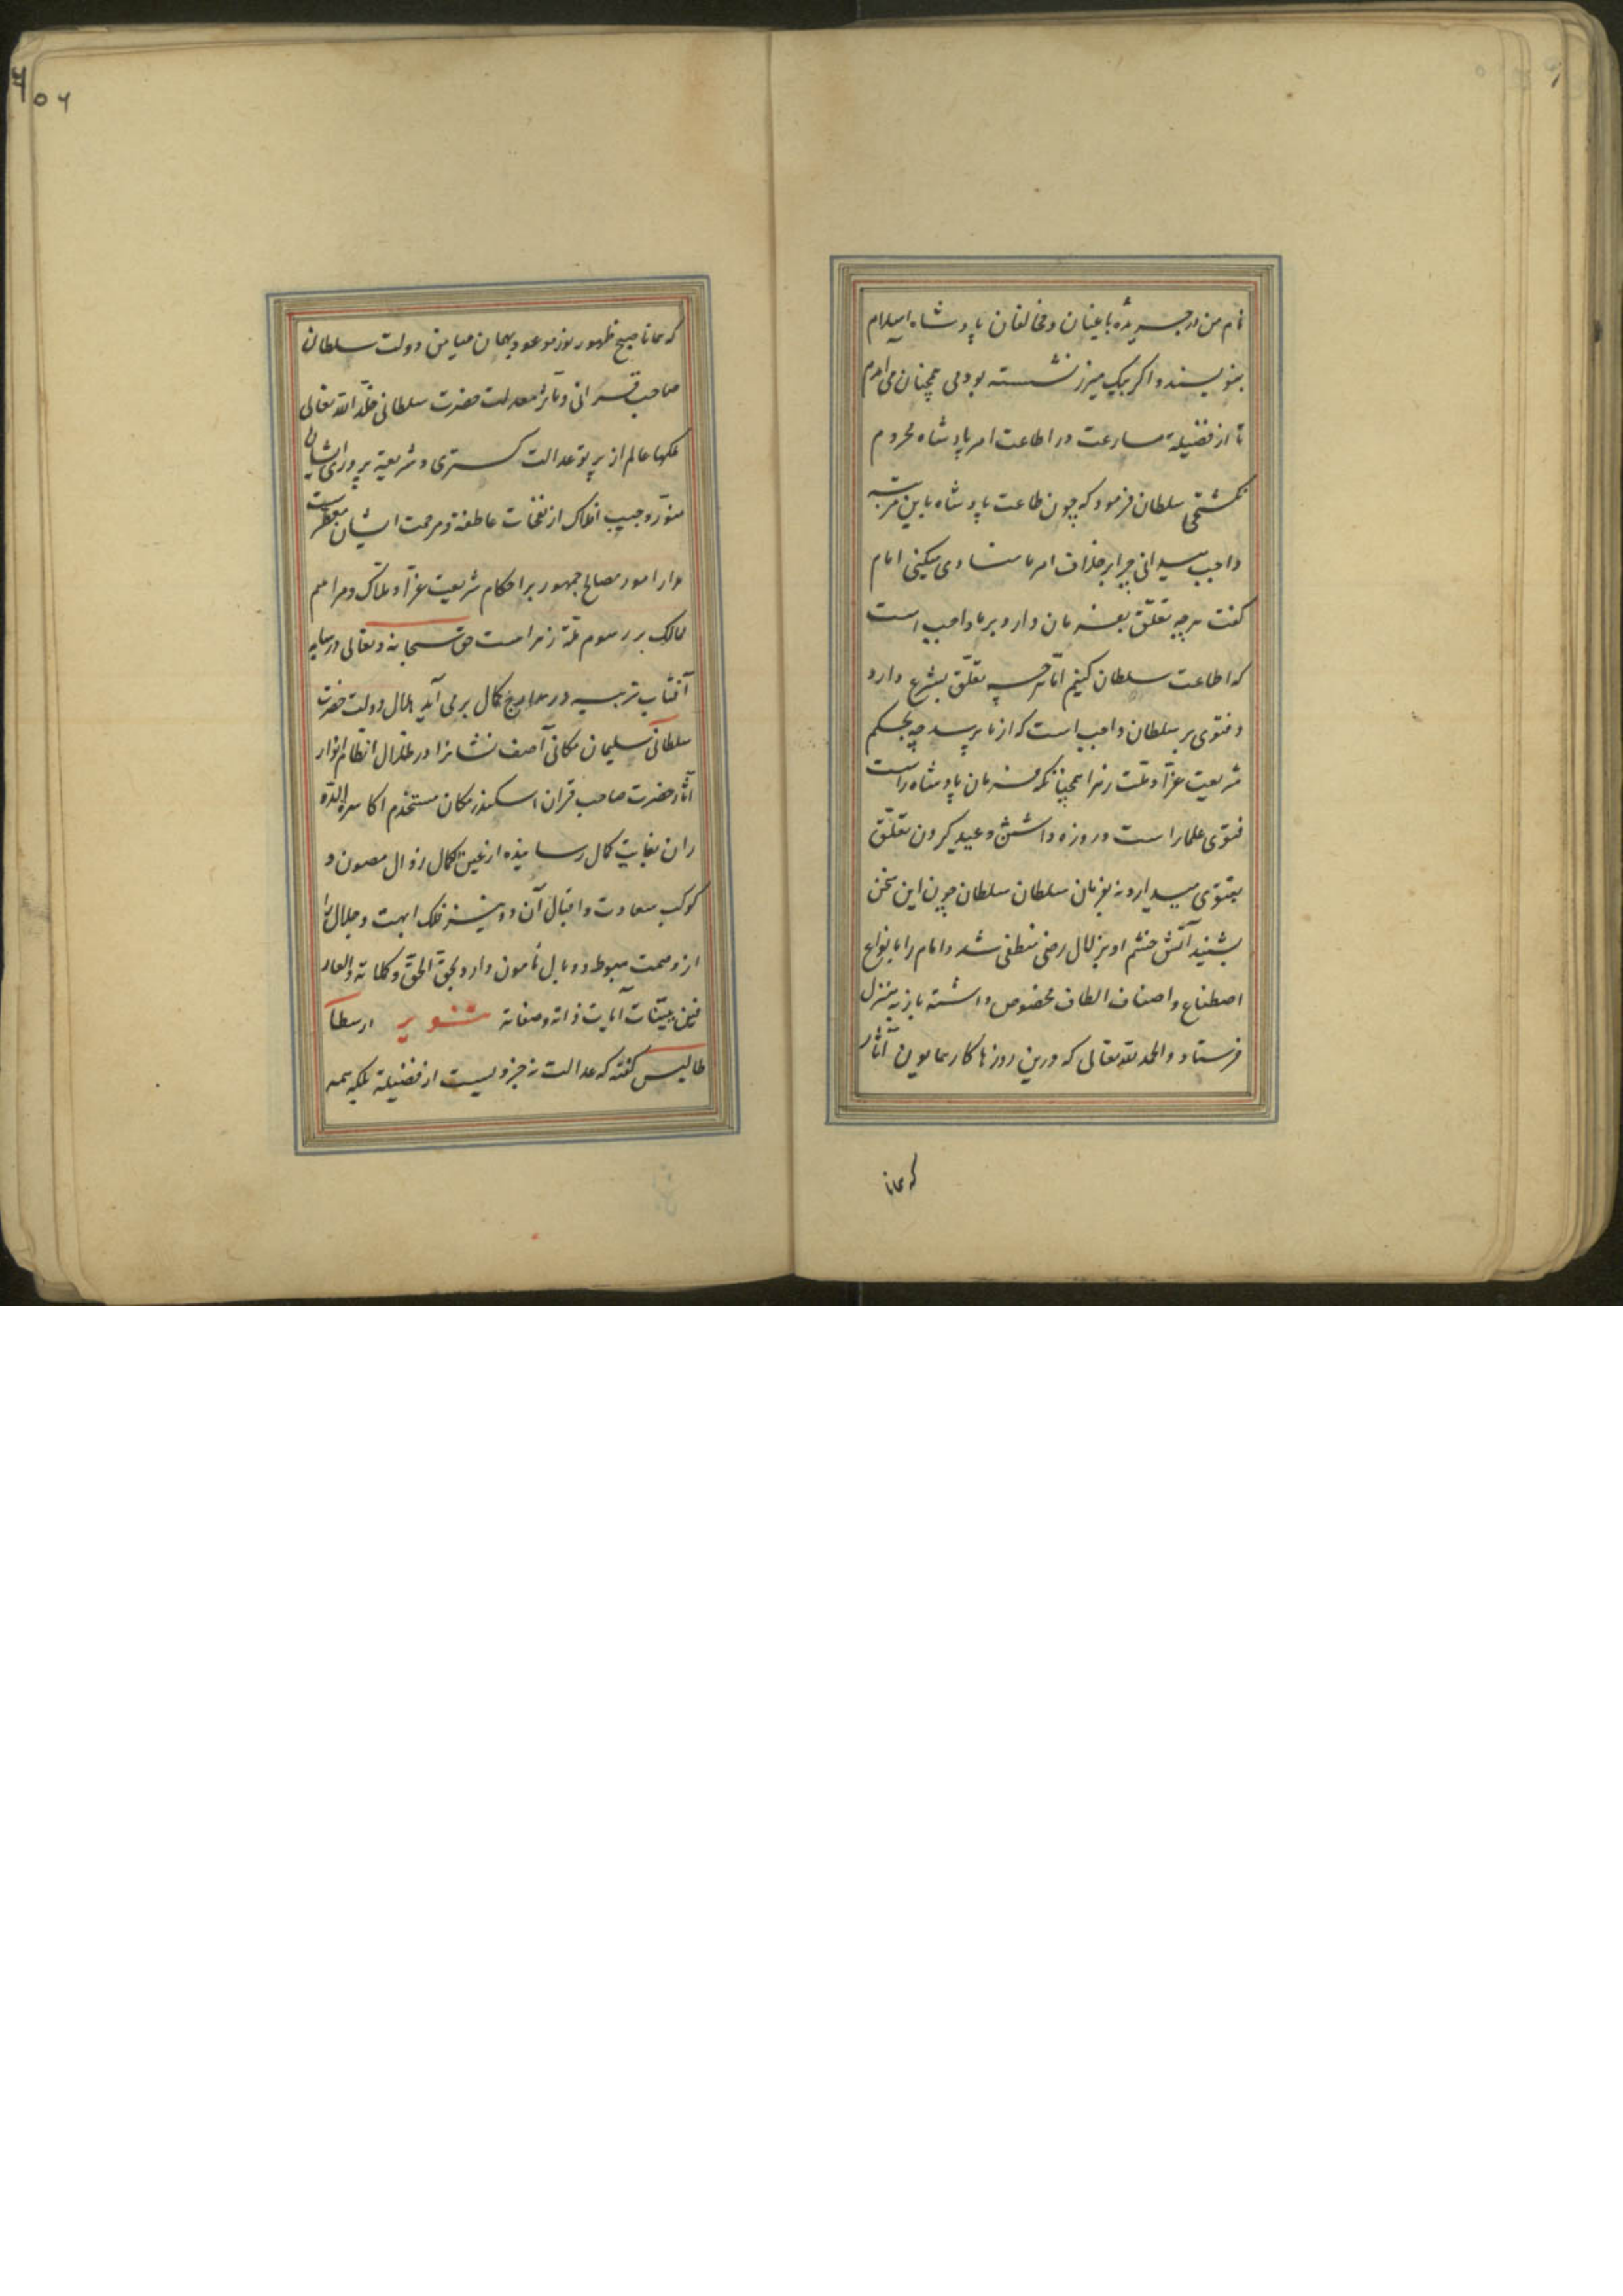 نام من در جریده باغیان و مخالفان پادشاه اسلام
بنویسند و اگر بیک میرز نشسته بودمی همچنان می آمدم
تا از فضیلة مسارعت در اطاعت امر پادشاه محروم
نکشتمی سلطان فرمود که چون طاعت پادشاه باین مرتبه
واجب میدانی چرا بر خلاف امر ما منادی میکنی امام
گفت هرچه تعلّق بفرمان دارد بر ما واجب است
که اطاعت سلطان کنیم امّا هرچه تعلّق بشرع دارد
و فتوی بر سلطان واجب است که از ما پرسد چه بحکم
شریعت غرّا و ملّت زهرا همچنانکه فرمان پادشاه راست
فتوی علما راست و روزه داشتن و عید کردن تعلّق
بفتوی میدارد نه بفرمان سلطان سلطان چون این سخن
بشنید آتش خشم او بزلال رضی منطفی شد و امام را بانواع
اصطناع و اصناف الطاف مخصوص داشته باز به منزل
فرستاد و الحمد لله تعالی که درین روزها کار همایون آثار
که همانا
که همانا صبح ظهور نور موعود بهمان میامن دولت سلطان
صاحب قرانی و تاثر معدلت حضرت سلطانی خلّد الله تعالی
ملکها عالم از پرتو عدالت گستری و شریعة پروری ایشان
منوّر و جیب افلاک از نفخات عاطفة و مرحمت ایشان معطرست
مدار امور مصالح جمهور بر احکام شریعت غرّا و ملاک و مراسم
ممالک بر رسوم ملّة زهراست حق سبحانه و تعالی در سایه
آفتاب تربیه در مدارج کمال برمی آید هلال دولت حضرت
سلطانی سلیمان مکانی آصف نشانرا در ظلال انظام انوار
آثار حضرت صاحب قران اسکندر مکان مستخدم اکاسره الدّه
ران بغایت کمال رسانیذه از عین الکمال زوال مصون و
کوکب سعادت و اقبال آن دو نیر فلک ابهت و جلال را
از وصمت هبوط و وبال مأمون دارد بحق الحقّ و کلماته و العار
فین ببیّنات آیات ذاته و صفاته تنویر ارسطا
طالیس گفته که عدالت نه جزویست از فضیلة بلکه همه